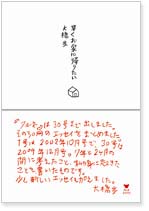 早くお家に帰りたい
大橋歩
"アルネ"は30号まで出しました。
その30冊のエッセイをまとめました。
1号は2002年10月号で、30号は
2009年12月号。7年と2ヶ月の
間に考えたこと、私の身に起きた
ことを書いたものです。
少し新しいエッセイも加えました。
大橋歩